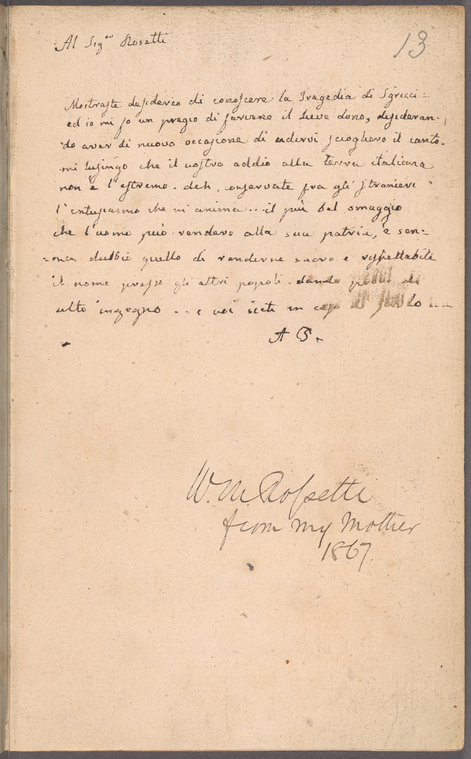 Al Sig.or Rosetti
13
Mostraste desiderio di conoscere la Tragedia di Sgricci -
ed io mi fo un pregio di farvene il lieve dono, desideran,
do aver di nuovo occasione di udirvi sciogliere il canto.
mi lusingo che il vostro addio alla terra italiana
non è l'estremo. deh, conservate fra gli stranieri
l'entusiasmo che vi anima... il più bel omaggio
che l'uomo può rendere alla sua patria, è sen-
-za dubbio quello di renderne sacro e rispettabile
il nome presso gli altri popoli. dando di
alto ingegno... e voi siete in di
A B.
W. M. Rossetti
from my Mother
1867.